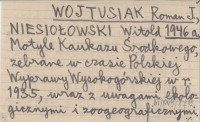 WOJTUSIAK Roman J.,
NIESIOŁOWSKI Witold 1940 a
Motyle Kaukazu Środkowego,
zebrane w czasie Polskiej
Wyprawy Wysokogórskiej w r.
1935, wraz z uwagami ekolo-
gicznymi i zoogeograficznymi